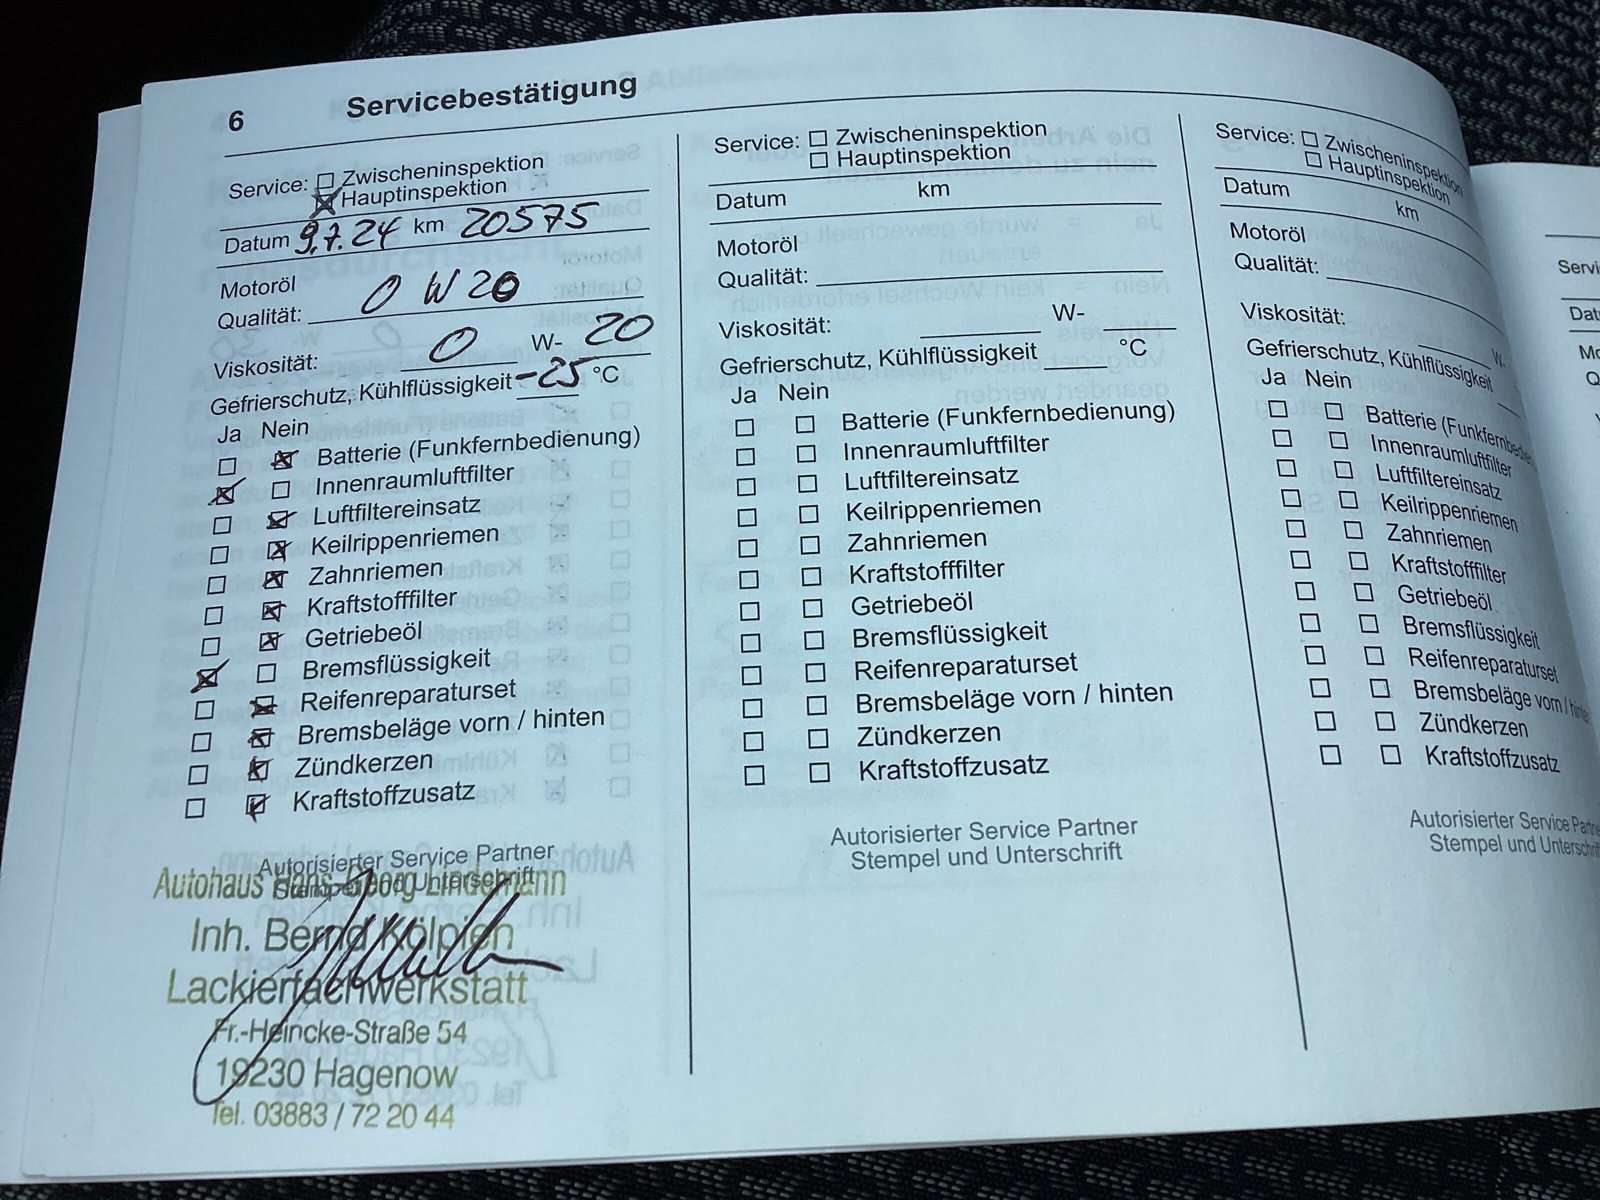 6 Servicebestätigung
Service: Zwischeninspektion
Hauptinspektion
Datum 9.7.24 km 20575
Motoröl
Qualität: 0 W 20
Viskosität: 0 W- 20
Gefrierschutz, Kühlflüssigkeit -25 °C
Ja Nein
Batterie (Funkfernbedienung)
Innenraumluftfilter
Luftfiltereinsatz
Keilrippenriemen
Zahnriemen
Kraftstofffilter
Getriebeöl
Bremsflüssigkeit
Reifenreparaturset
Bremsbeläge vorn / hinten
Zündkerzen
Kraftstoffzusatz
Autorisierter Service Partner
Stempel und Unterschrift
Autohaus Hans Georg Lindemann
Inh. Bernd Kölpien
Lackierfachwerkstatt
Fr.-Heincke-Straße 54
19230 Hagenow
Tel. 03883 / 72 20 44
Service: Zwischeninspektion
Hauptinspektion
Datum km
Motoröl
Qualität:
Viskosität: W-
Gefrierschutz, Kühlflüssigkeit °C
Ja Nein
Batterie (Funkfernbedienung)
Innenraumluftfilter
Luftfiltereinsatz
Keilrippenriemen
Zahnriemen
Kraftstofffilter
Getriebeöl
Bremsflüssigkeit
Reifenreparaturset
Bremsbeläge vorn / hinten
Zündkerzen
Kraftstoffzusatz
Autorisierter Service Partner
Stempel und Unterschrift
Service: Zwischeninspektion
Hauptinspektion
Datum km
Motoröl
Qualität:
Viskosität: W-
Gefrierschutz, Kühlflüssigkeit
Ja Nein
Batterie (Funkfernbedien
Innenraumluftfilter
Luftfiltereinsatz
Keilrippenriemen
Zahnriemen
Kraftstofffilter
Getriebeöl
Bremsflüssigkeit
Reifenreparaturset
Bremsbeläge vorn / hinten
Zündkerzen
Kraftstoffzusatz
Autorisierter Service Partne
Stempel und Unterschrift
Servi
Dat
Mo
Q